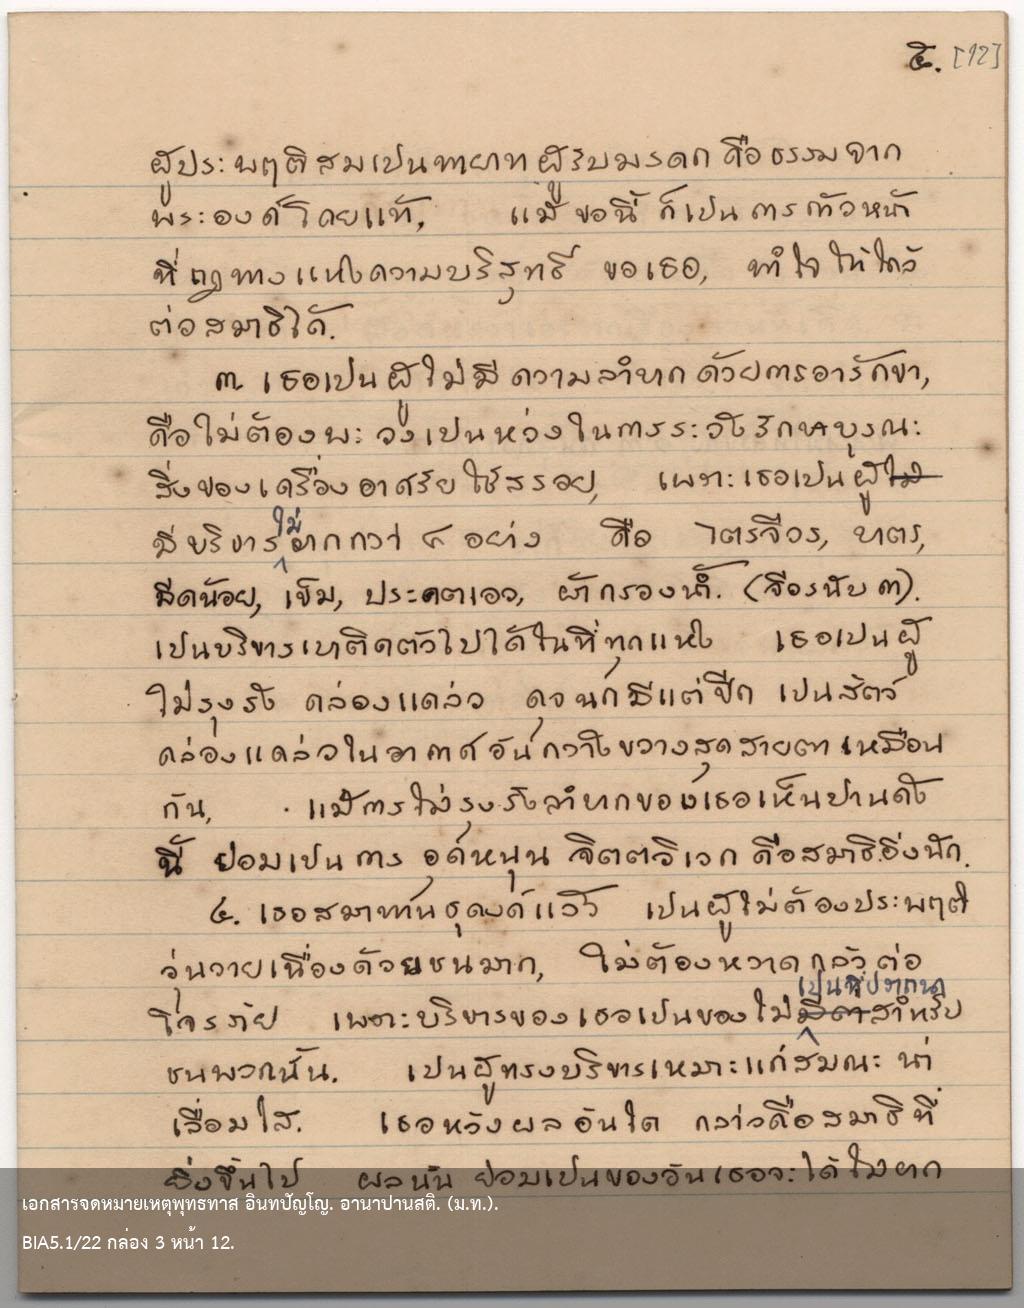 ๕. [12]
ผู้ประพฤติสมเป็นทายาท ผู้รับมรดก คือธรรมจาก
พระองค์โดยแท้, แม้ ข้อนี้ ก็เป็น การก้าวหน้า
ที่ถูกทางแห่งความบริสุทธิ์ ของเธอ, ทำใจให้ใกล้
ต่อสมาธิได้.
๓. เธอเป็น ผู้ไม่มี ความลำบาก ด้วยการอารักขา,
คือไม่ต้องพะวงเป็นห่วงในการระวังรักษาบูรณะ
สิ่งของเครื่องอาศรัยใช้สรอย, เพราะเธอเป็นผู้ไม่
มีบริขารไม่มากกว่า ๘ อย่าง คือ ไตรจีวร, บาตร,
มีดน้อย, เข็ม, ประคตเอว, ผ้ากรองน้ำ. (จีวรนับ ๓).
เป็นบริขารเบาติดตัวไปได้ในที่ทุกแห่ง เธอเป็นผู้
ไม่รุงรัง คล่องแคล่ว ดุจนกมีแต่ปีก เป็นสัตว์
คล่องแคล่วในอากาศอันกว้างขวางสุดสายตา เหมือน
กัน, แม้การไม่รุงรังลำบากของเธอเห็นปานดัง
นี้ ย่อมเป็น การ อุดหนุน จิตตวิเวก คือสมาธิยิ่งนัก.
๔. เธอสมาทานธุดงค์แล้ว เป็นผู้ไม่ต้องประพฤติ
วุ่นวายเนื่องด้วยชนมาก, ไม่ต้องหวาดกลัวต่อ
โจรภัย เพราะบริขารของเธอเป็นของไม่เป็นที่ปรารถนาสำหรับ
ชนพวกนั้น. เป็นผู้ทรงบริขารเหมาะแก่สมณะ น่า
เลื่อมใส. เธอหวังผลอันใด กล่าวคือสมาธิที่
ยิ่งขึ้นไป ผลนั้น ย่อมเป็นของอันเธอจะได้ไม่ยาก
เอกสารจดหมายเหตุพุทธทาส อินทปัญโญ. อานาปานสติ. (ม.ท.).
BIA5.1/22 กล่อง 3 หน้า 12.